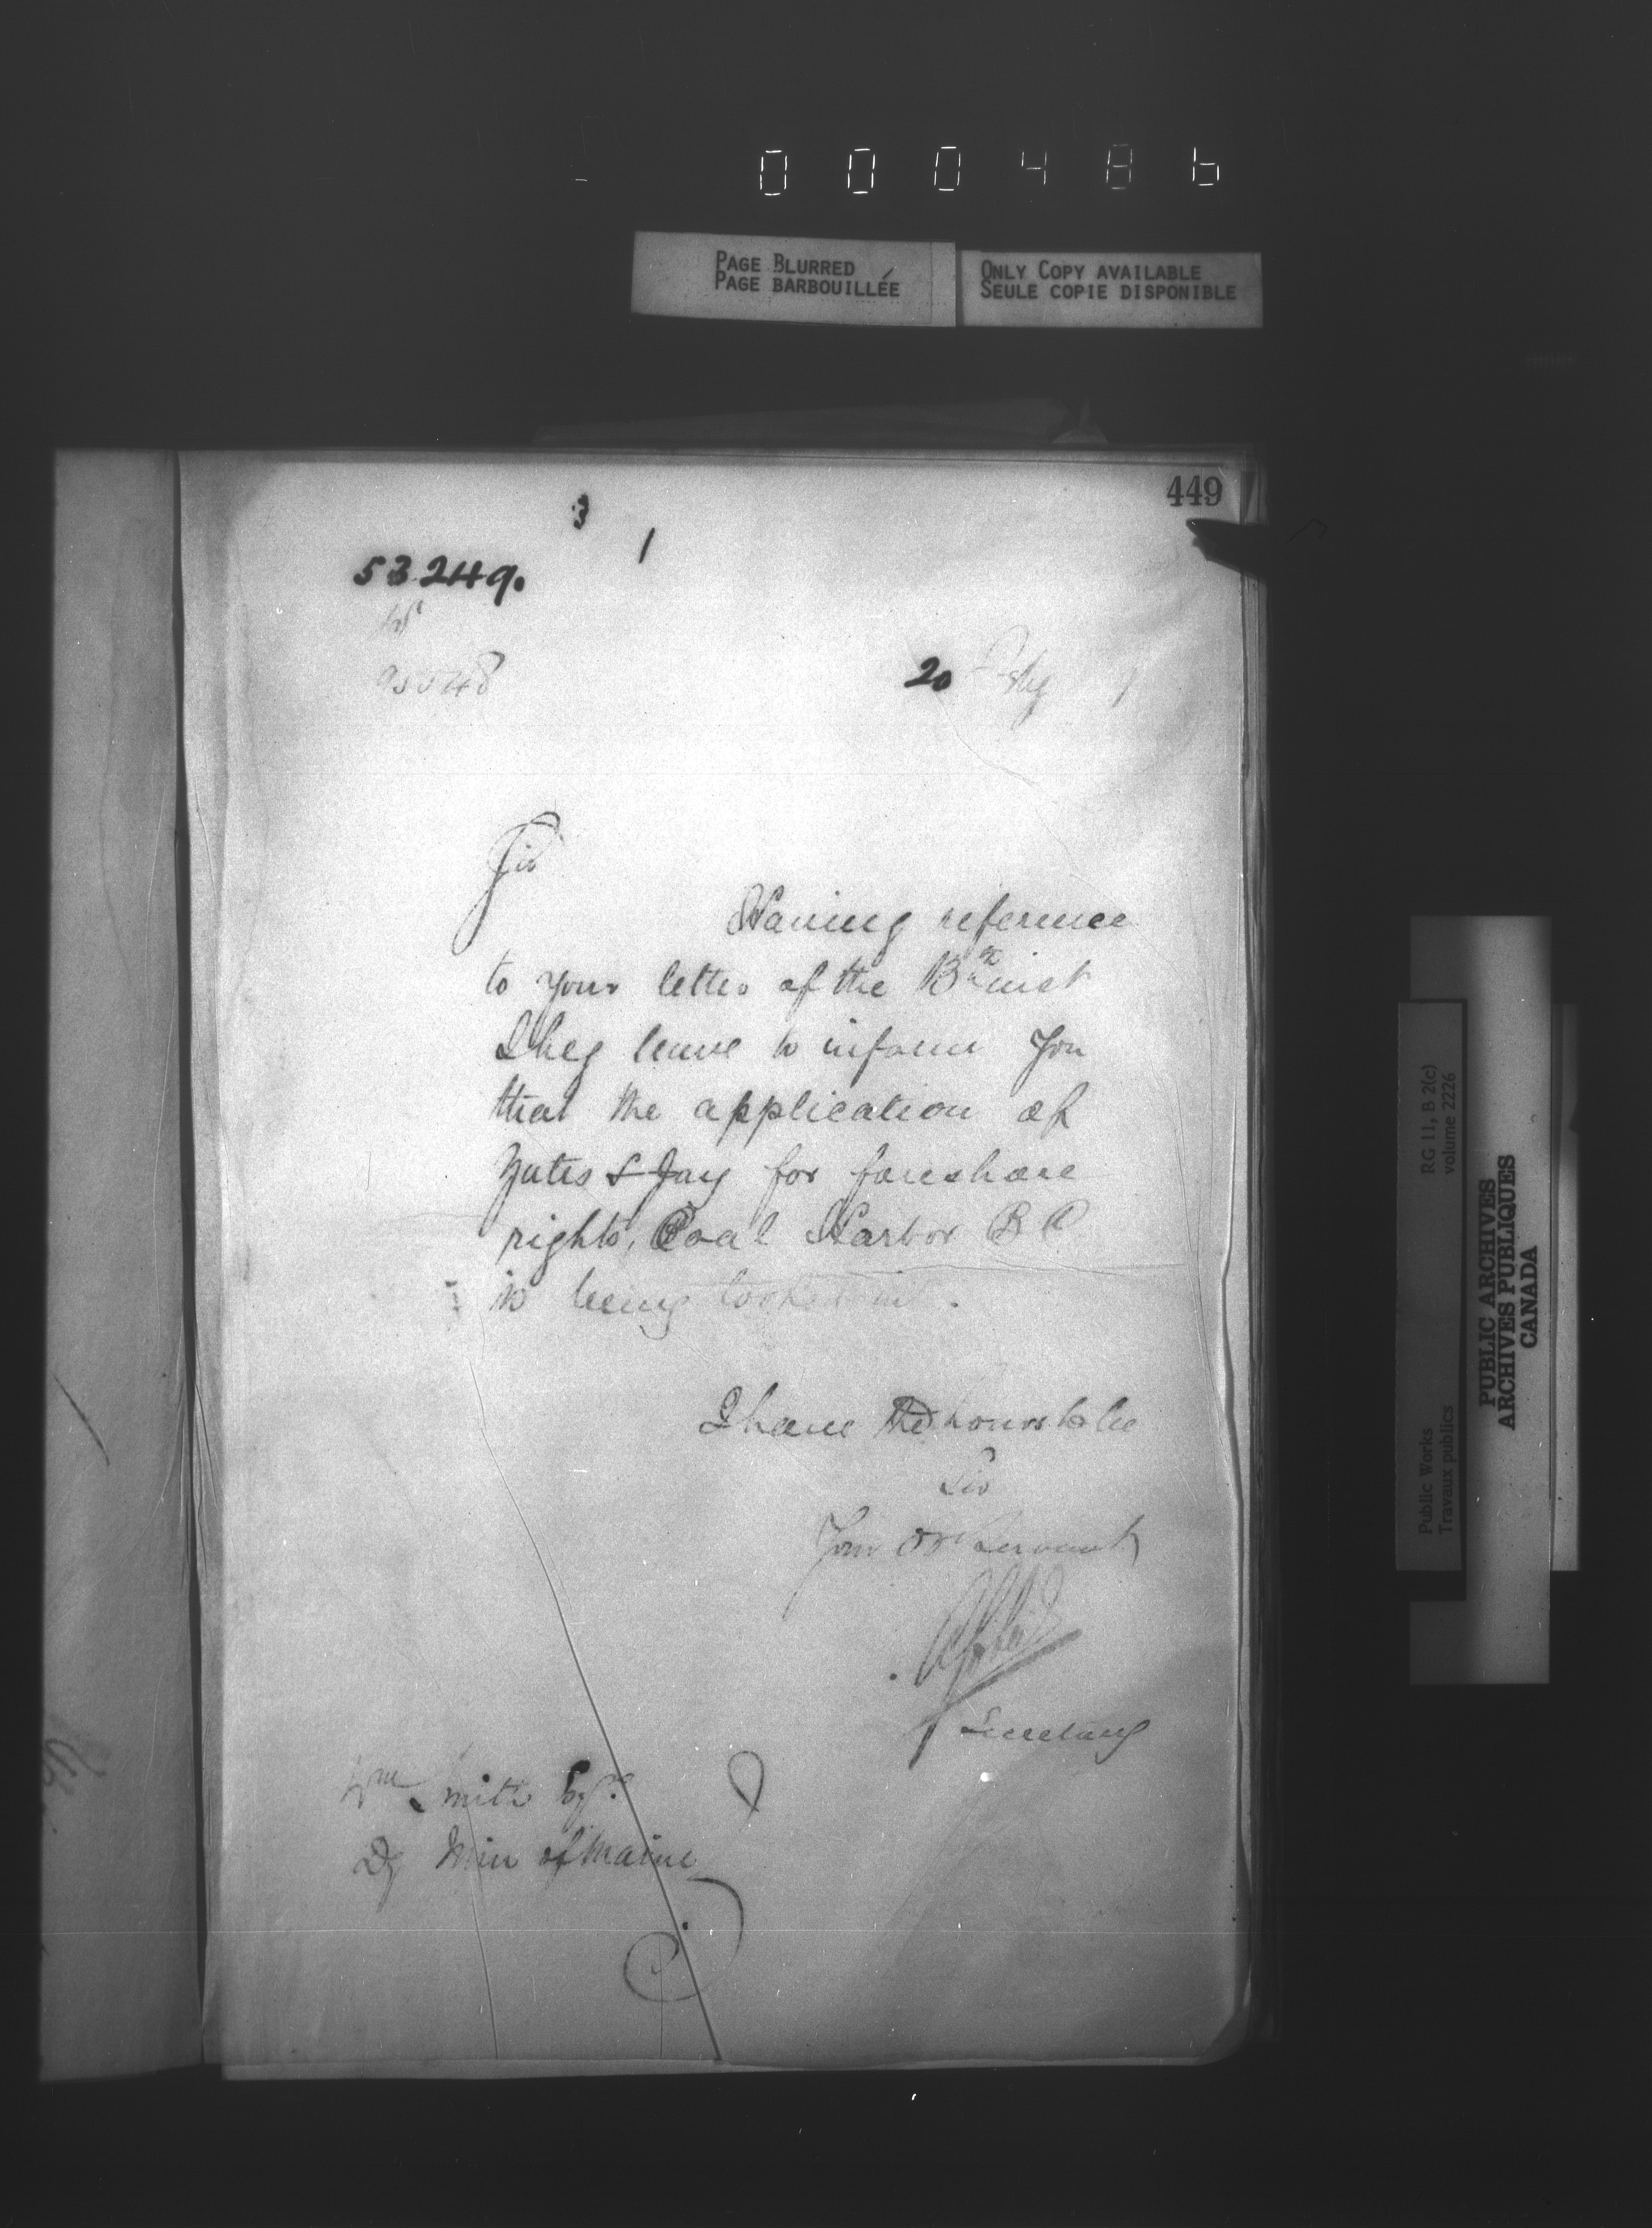 000486
PAGE BLURRED
PAGE BARBOUILLÉE
ONLY COPY AVAILABLE
SEULE COPIE DISPONIBLE
449
3
1
53249.
20 Feby 1
Sir
Having reference
to your letter of the 13th inst
I beg leave to inform you
that the application of
Yates & Jay for foreshore
rights, Coal Harbor B C
is being looked into.
I have the honor to be
Sir
Your Obt Servant
Secretary
Wm Smith Esqre
Dy Min of Marine
RG 11, B 2(c)
volume 2226
Public Works
Travaux publics
PUBLIC ARCHIVES
ARCHIVES PUBLIQUES
CANADA